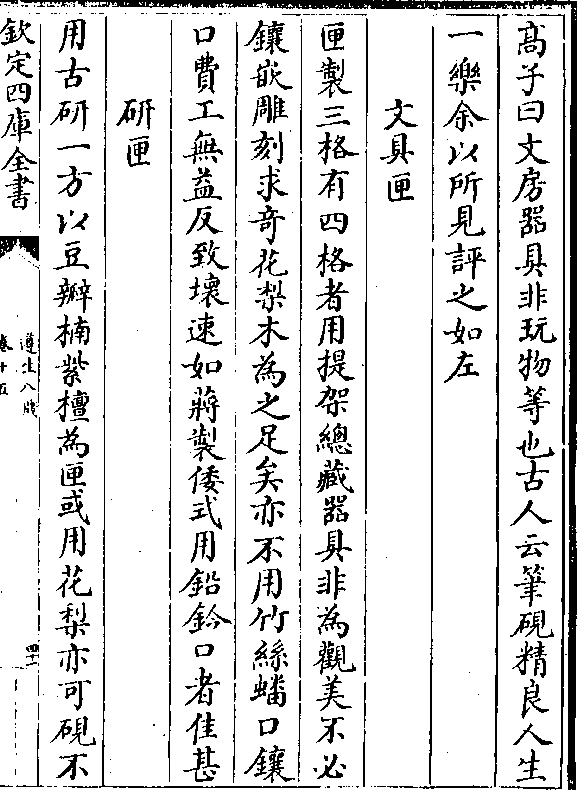 高子曰文房器具非玩物等也古人云筆硯精良人生
一樂余以所見評之如左
文具匣
匣製三格有四格者用提架總藏器具非為觀美不必
鑲嵌雕刻求竒花梨木為之足矣亦不用竹絲蟠口鑲
口費工無益反致壞速如蔣製倭式用鉛鈐口者佳甚
研匣
用古研一方以豆瓣楠紫檀為匣或用花梨亦可硯不
欽定四庫全書
遵生八牋
卷十五
四十一